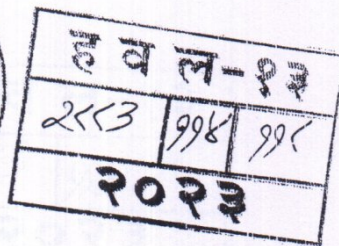 ह व ल-१३
२८८३ ११४ ११८
२०२३